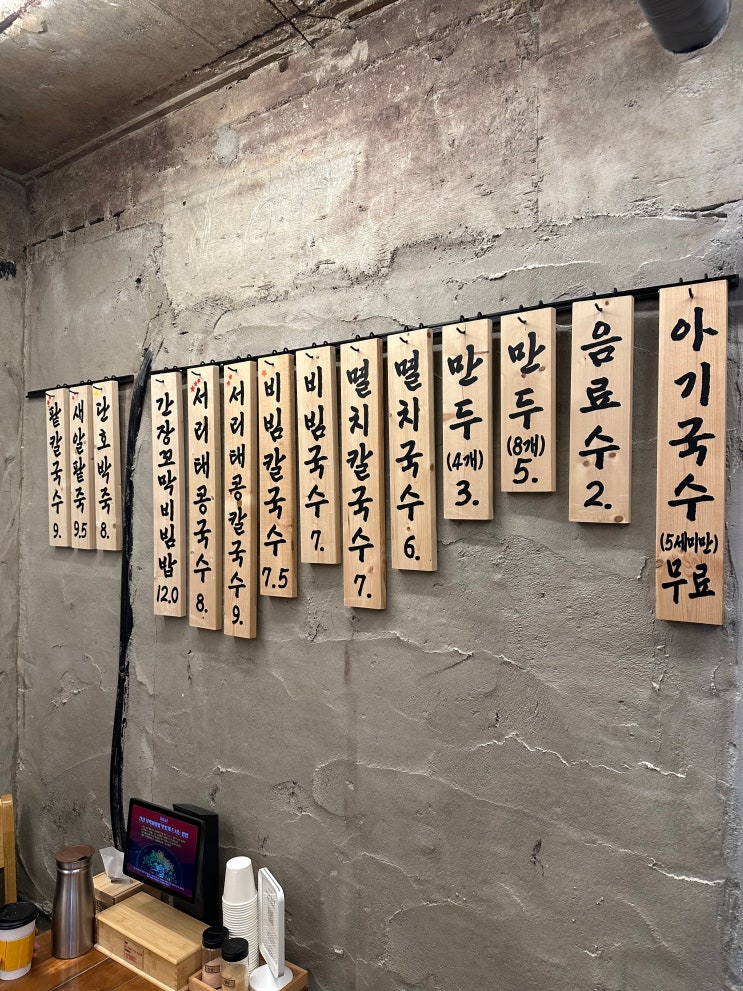 팥칼국수 9.
새알팥죽 9.5
단호박죽 8.
간장꼬막비빔밥 12.0
서리태콩국수 8.
서리태콩칼국수 9.
비빔칼국수 7.5
비빔국수 7.
멸치칼국수 7.
멸치국수 6.
만두 (4개) 3.
만두 (8개) 5.
음료수 2.
아기국수 (5세미만) 무료